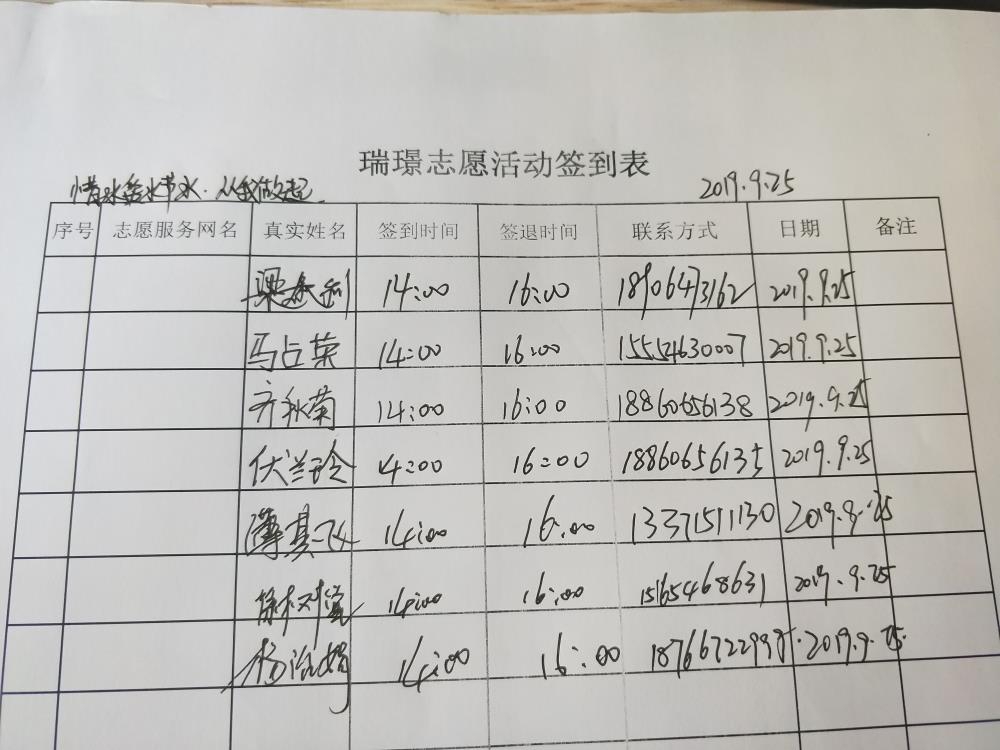 瑞璟志愿活动签到表
惜水 水节水.从我做起 2019.9.25
序号 志愿服务网名 真实姓名 签到时间 签退时间 联系方式 日期 备注
14:00 16:00 18906473162 2019.9.25
马占荣 14:00 16:00 15554630007 2019.9.25
齐秋菊 14:00 16:00 18860656138 2019.9.25
伏兰玲 4:00 16:00 18860656135 2019.9.25
14:00 16:00 13371511130 2019.9.25
14:00 16:00 15165468631 2019.9.25
杨治娟 14:00 16:00 2019.9.25.